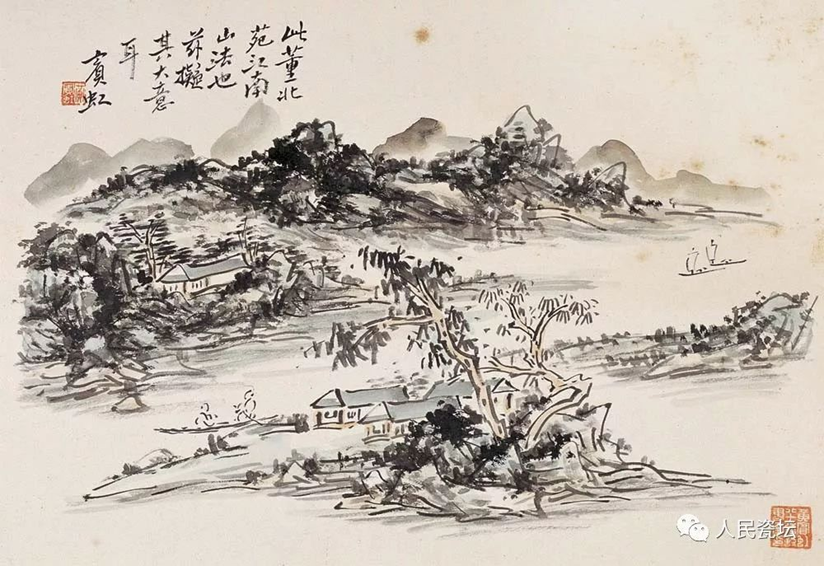 此董北
苑江南
山法也
兹擬
其大意
耳
賓虹
人民瓷坛